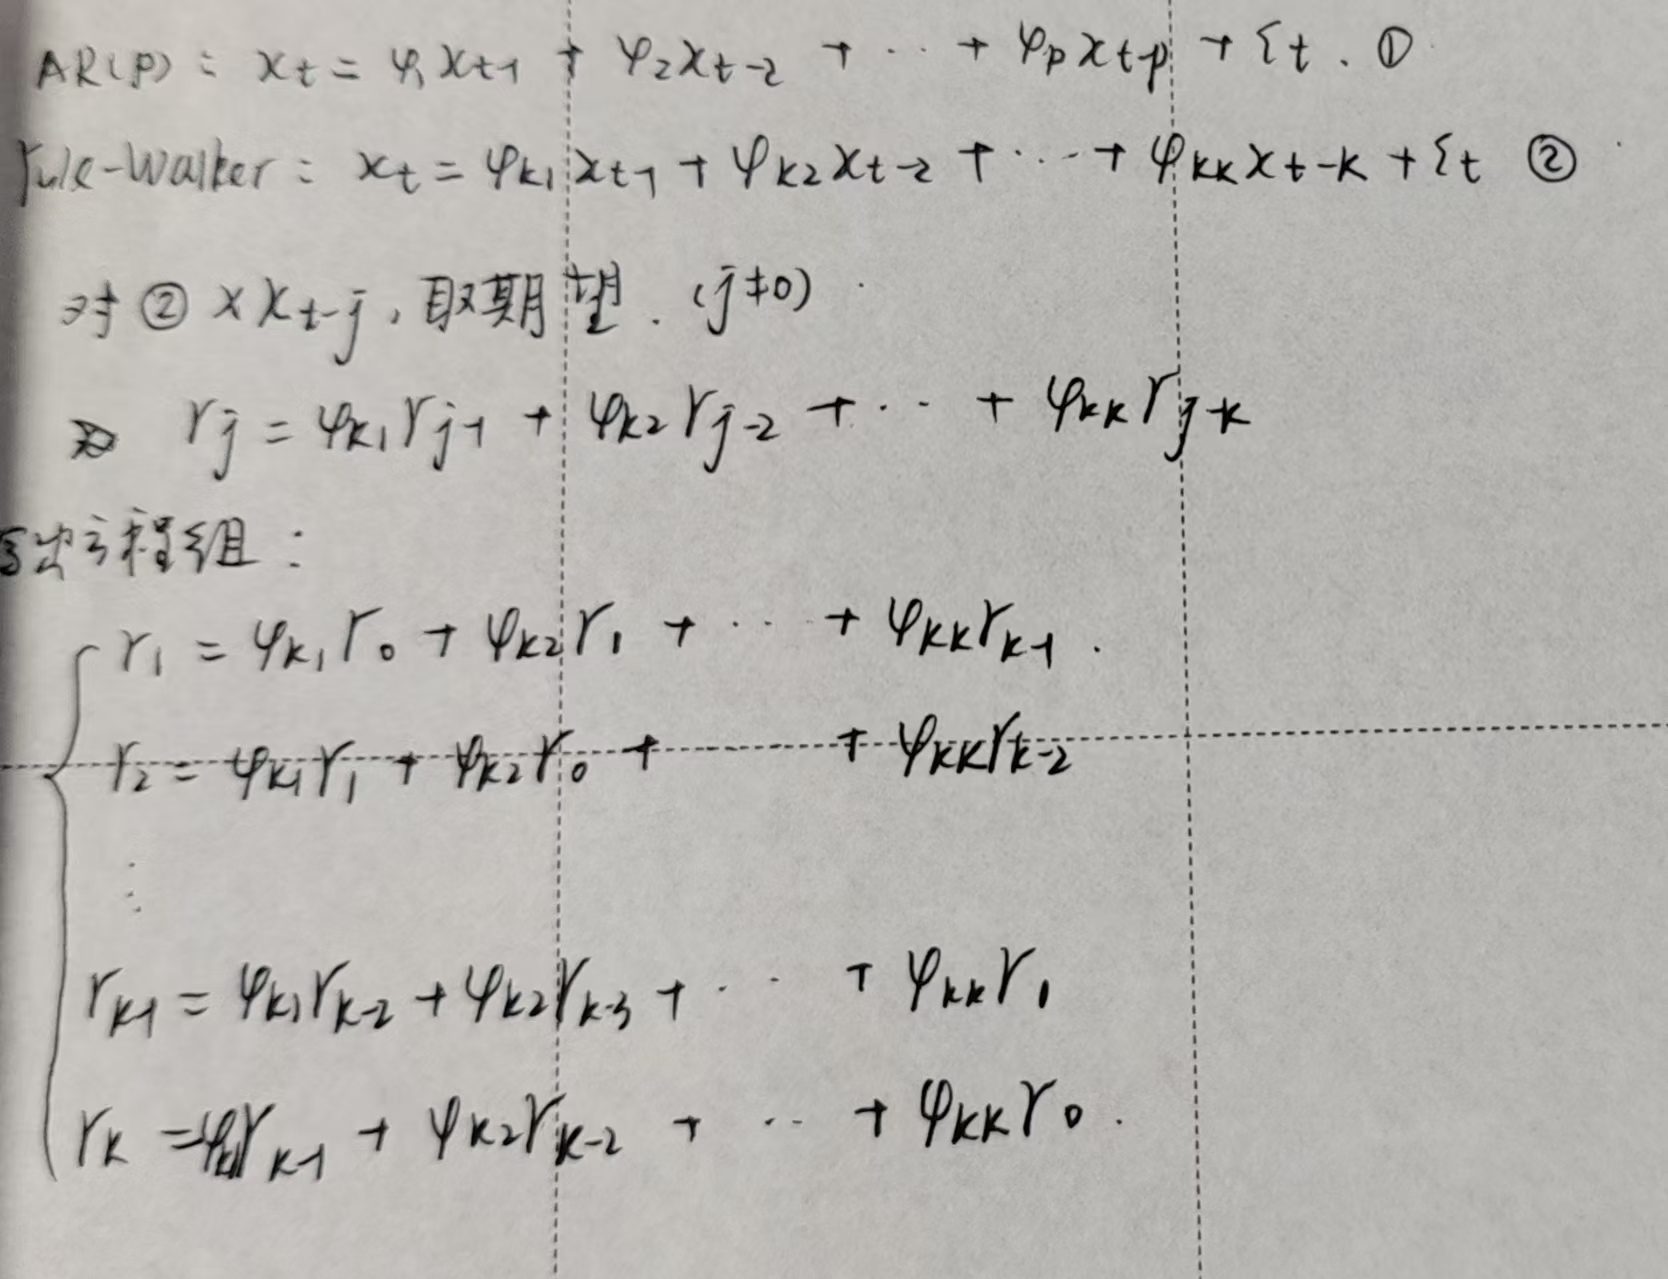 AR(p): xt = φ1xt-1 + φ2xt-2 + ··· + φpxt-p + εt. ①
Yule-Walker: xt = φk1xt-1 + φk2xt-2 + ··· + φkkxt-k + εt ②
对②×xt-j,取期望.(j≠0)
⇒ rj = φk1rj-1 + φk2rj-2 + ··· + φkkrj-k
写出方程组:
r1 = φk1r0 + φk2r1 + ··· + φkkrk-1.
r2 = φk1r1 + φk2r0 + + φkkrk-2
⋮
rk-1 = φk1rk-2 + φk2rk-3 + ··· + φkkr1
rk = φk1rk-1 + φk2rk-2 + ··· + φkkr0.